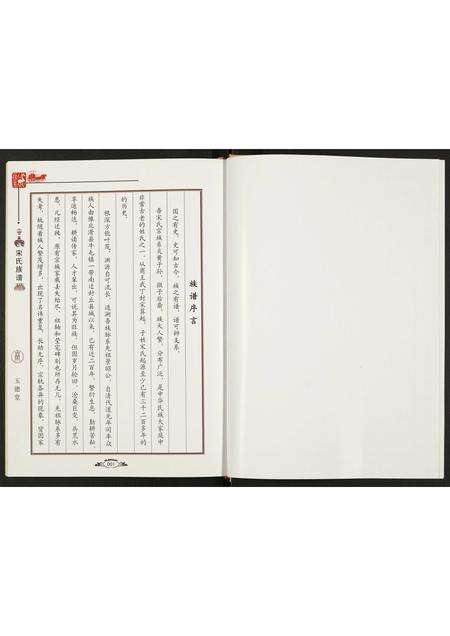 族谱序言
国之有史，史可知古今，族之有谱，谱可辨支系。
吾宋氏宗族系炎黄子孙，微子后裔，族大人繁，分布广泛，是中华民族大家庭中
非常古老的姓氏之一。从商王武丁封宋算起，子姓宋氏起源至少已有三千二百多年的
的历史。
根深方能叶茂，渊源自可流长，追溯吾族脉系先祖景昭公，自清代道光年间率众
族人由滑县牛屯镇一带南迁封丘县城以来，已有近二百年，繁衍生息，勤耕苦耘，
享运畅达，耕读传家，人才辈出，可说其为旺族，但因岁月轮回，沧桑巨变，兵荒水
患，几经迁徙，原有宗族家乘丢失殆尽，祖轴和茔宅碑刻也所存无几，先祖脉系多有
失考，致随着族人繁茂增多，出现了名讳重复，长幼无序，宗轨各异的现象，皆因家
宋氏族谱
玉德堂
001